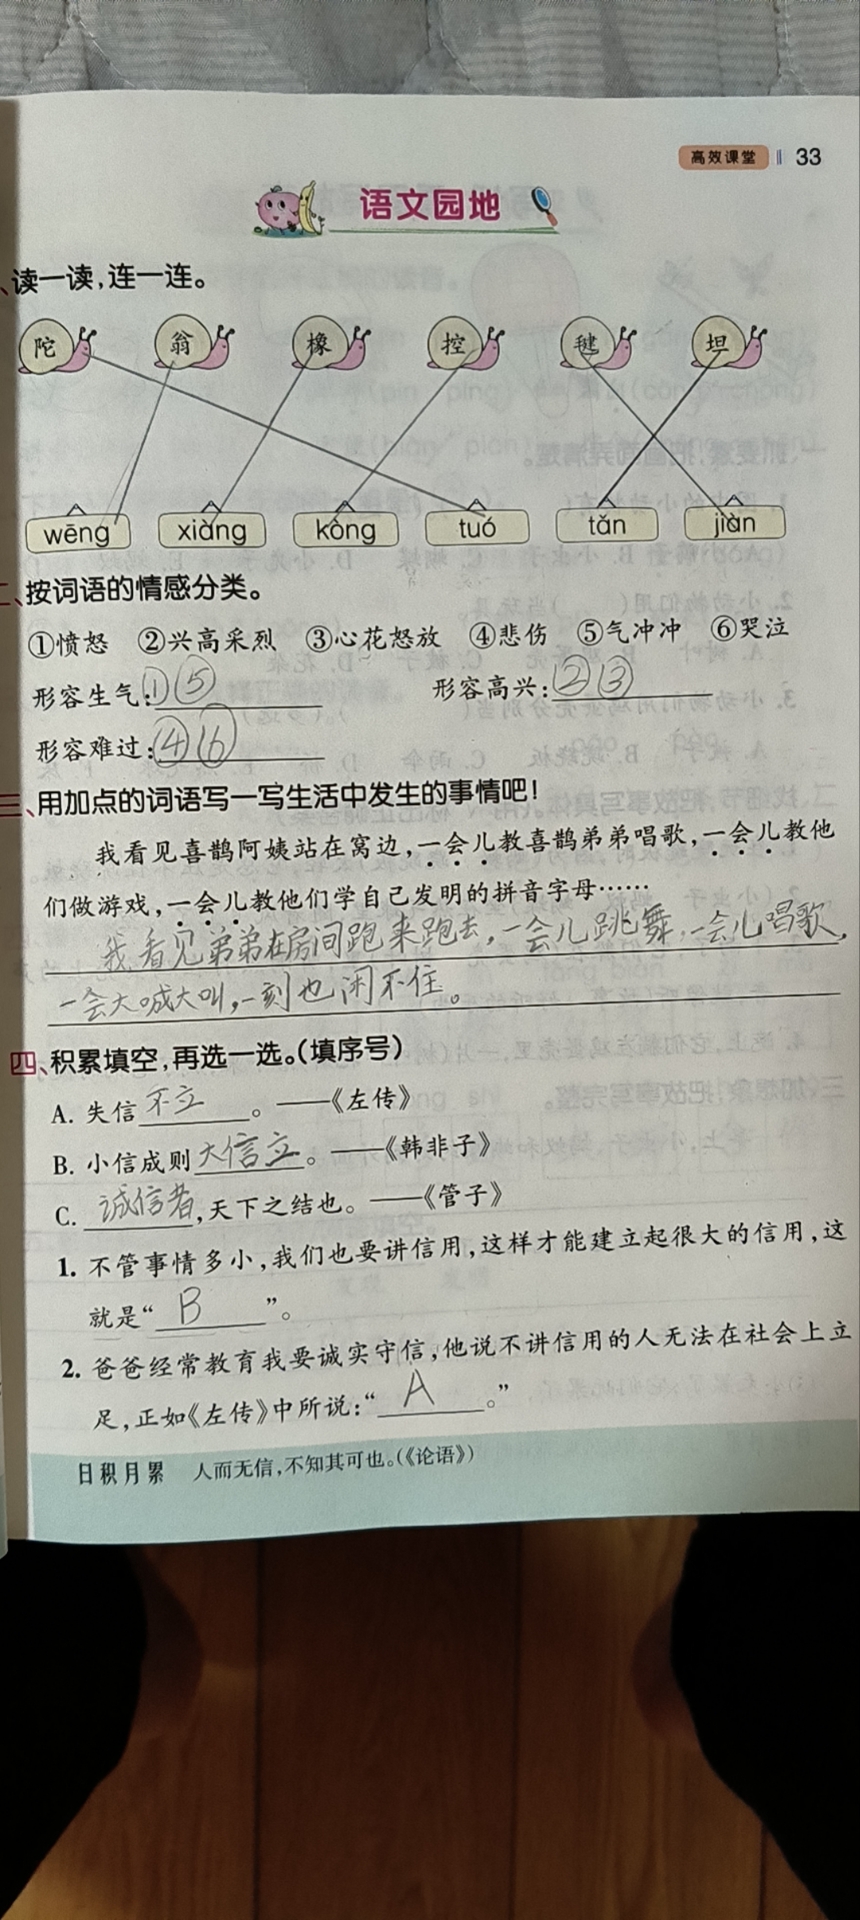 高效课堂 33
语文园地
、读一读,连一连。
陀 翁 橡 控 毽 坦
wēng xiàng kòng tuó tǎn jiàn
二、按词语的情感分类。
①愤怒 ②兴高采烈 ③心花怒放 ④悲伤 ⑤气冲冲 ⑥哭泣
形容生气:①⑤ 形容高兴:②③
形容难过:④⑥
三、用加点的词语写一写生活中发生的事情吧!
我看见喜鹊阿姨站在窝边,一会儿教喜鹊弟弟唱歌,一会儿教他
们做游戏,一会儿教他们学自己发明的拼音字母……
我看见弟弟在房间跑来跑去,一会儿跳舞,一会儿唱歌,
一会大喊大叫,一刻也闲不住。
四、积累填空,再选一选。(填序号)
A. 失信不立。——《左传》
B. 小信成则大信立。——《韩非子》
C. 诚信者,天下之结也。——《管子》
1. 不管事情多小,我们也要讲信用,这样才能建立起很大的信用,这
就是“B”。
2. 爸爸经常教育我要诚实守信,他说不讲信用的人无法在社会上立
足,正如《左传》中所说:“A。”
日积月累 人而无信,不知其可也。(《论语》)